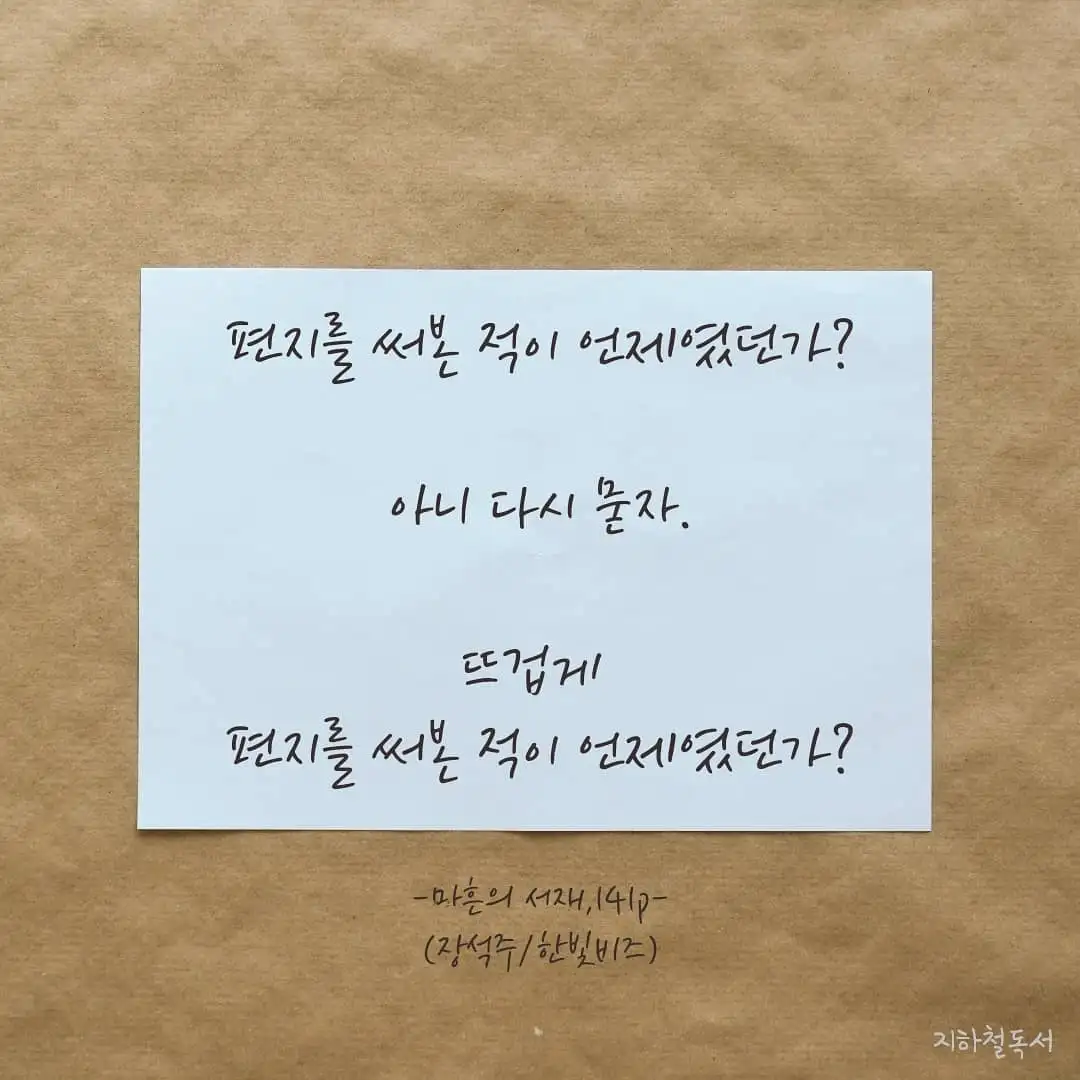 편지를 써본 적이 언제였던가?
아니 다시 묻자.
뜨겁게
편지를 써본 적이 언제였던가?
-마흔의 서재,141p-
(장석주/한빛비즈)
지하철독서